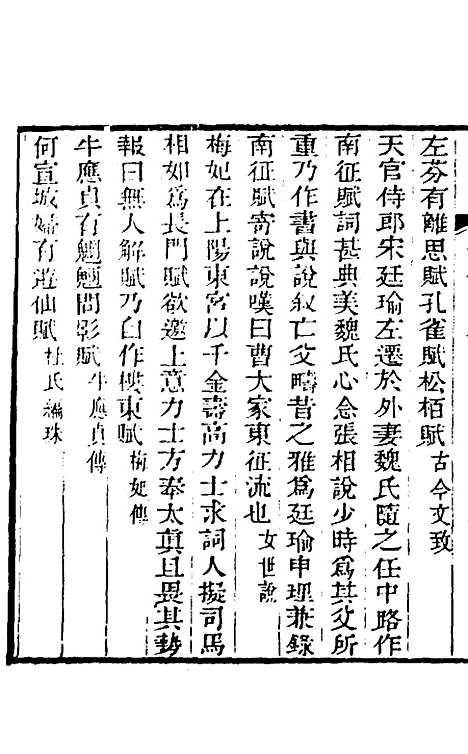 左芬有離思賦孔雀賦松栢賦古今文致
天官侍郎宋廷瑜左遷於外妻魏氏隨之任中路作
南征賦詞甚典美魏氏心念張相說少時爲其父所
重乃作書與說叙亡父疇昔之雅爲廷瑜申理兼錄
南征賦寄說說嘆曰曹大家東征流也女世說
梅妃在上陽東宮以千金壽高力士求詞人擬司馬
相如爲長門賦欲邀上意力士方奉太眞且畏其勢
報曰無人解賦乃自作樓東賦梅妃傳
牛應貞有魍魎問影賦牛應貞傳
何宣城婦有遊仙賦杜氏編珠